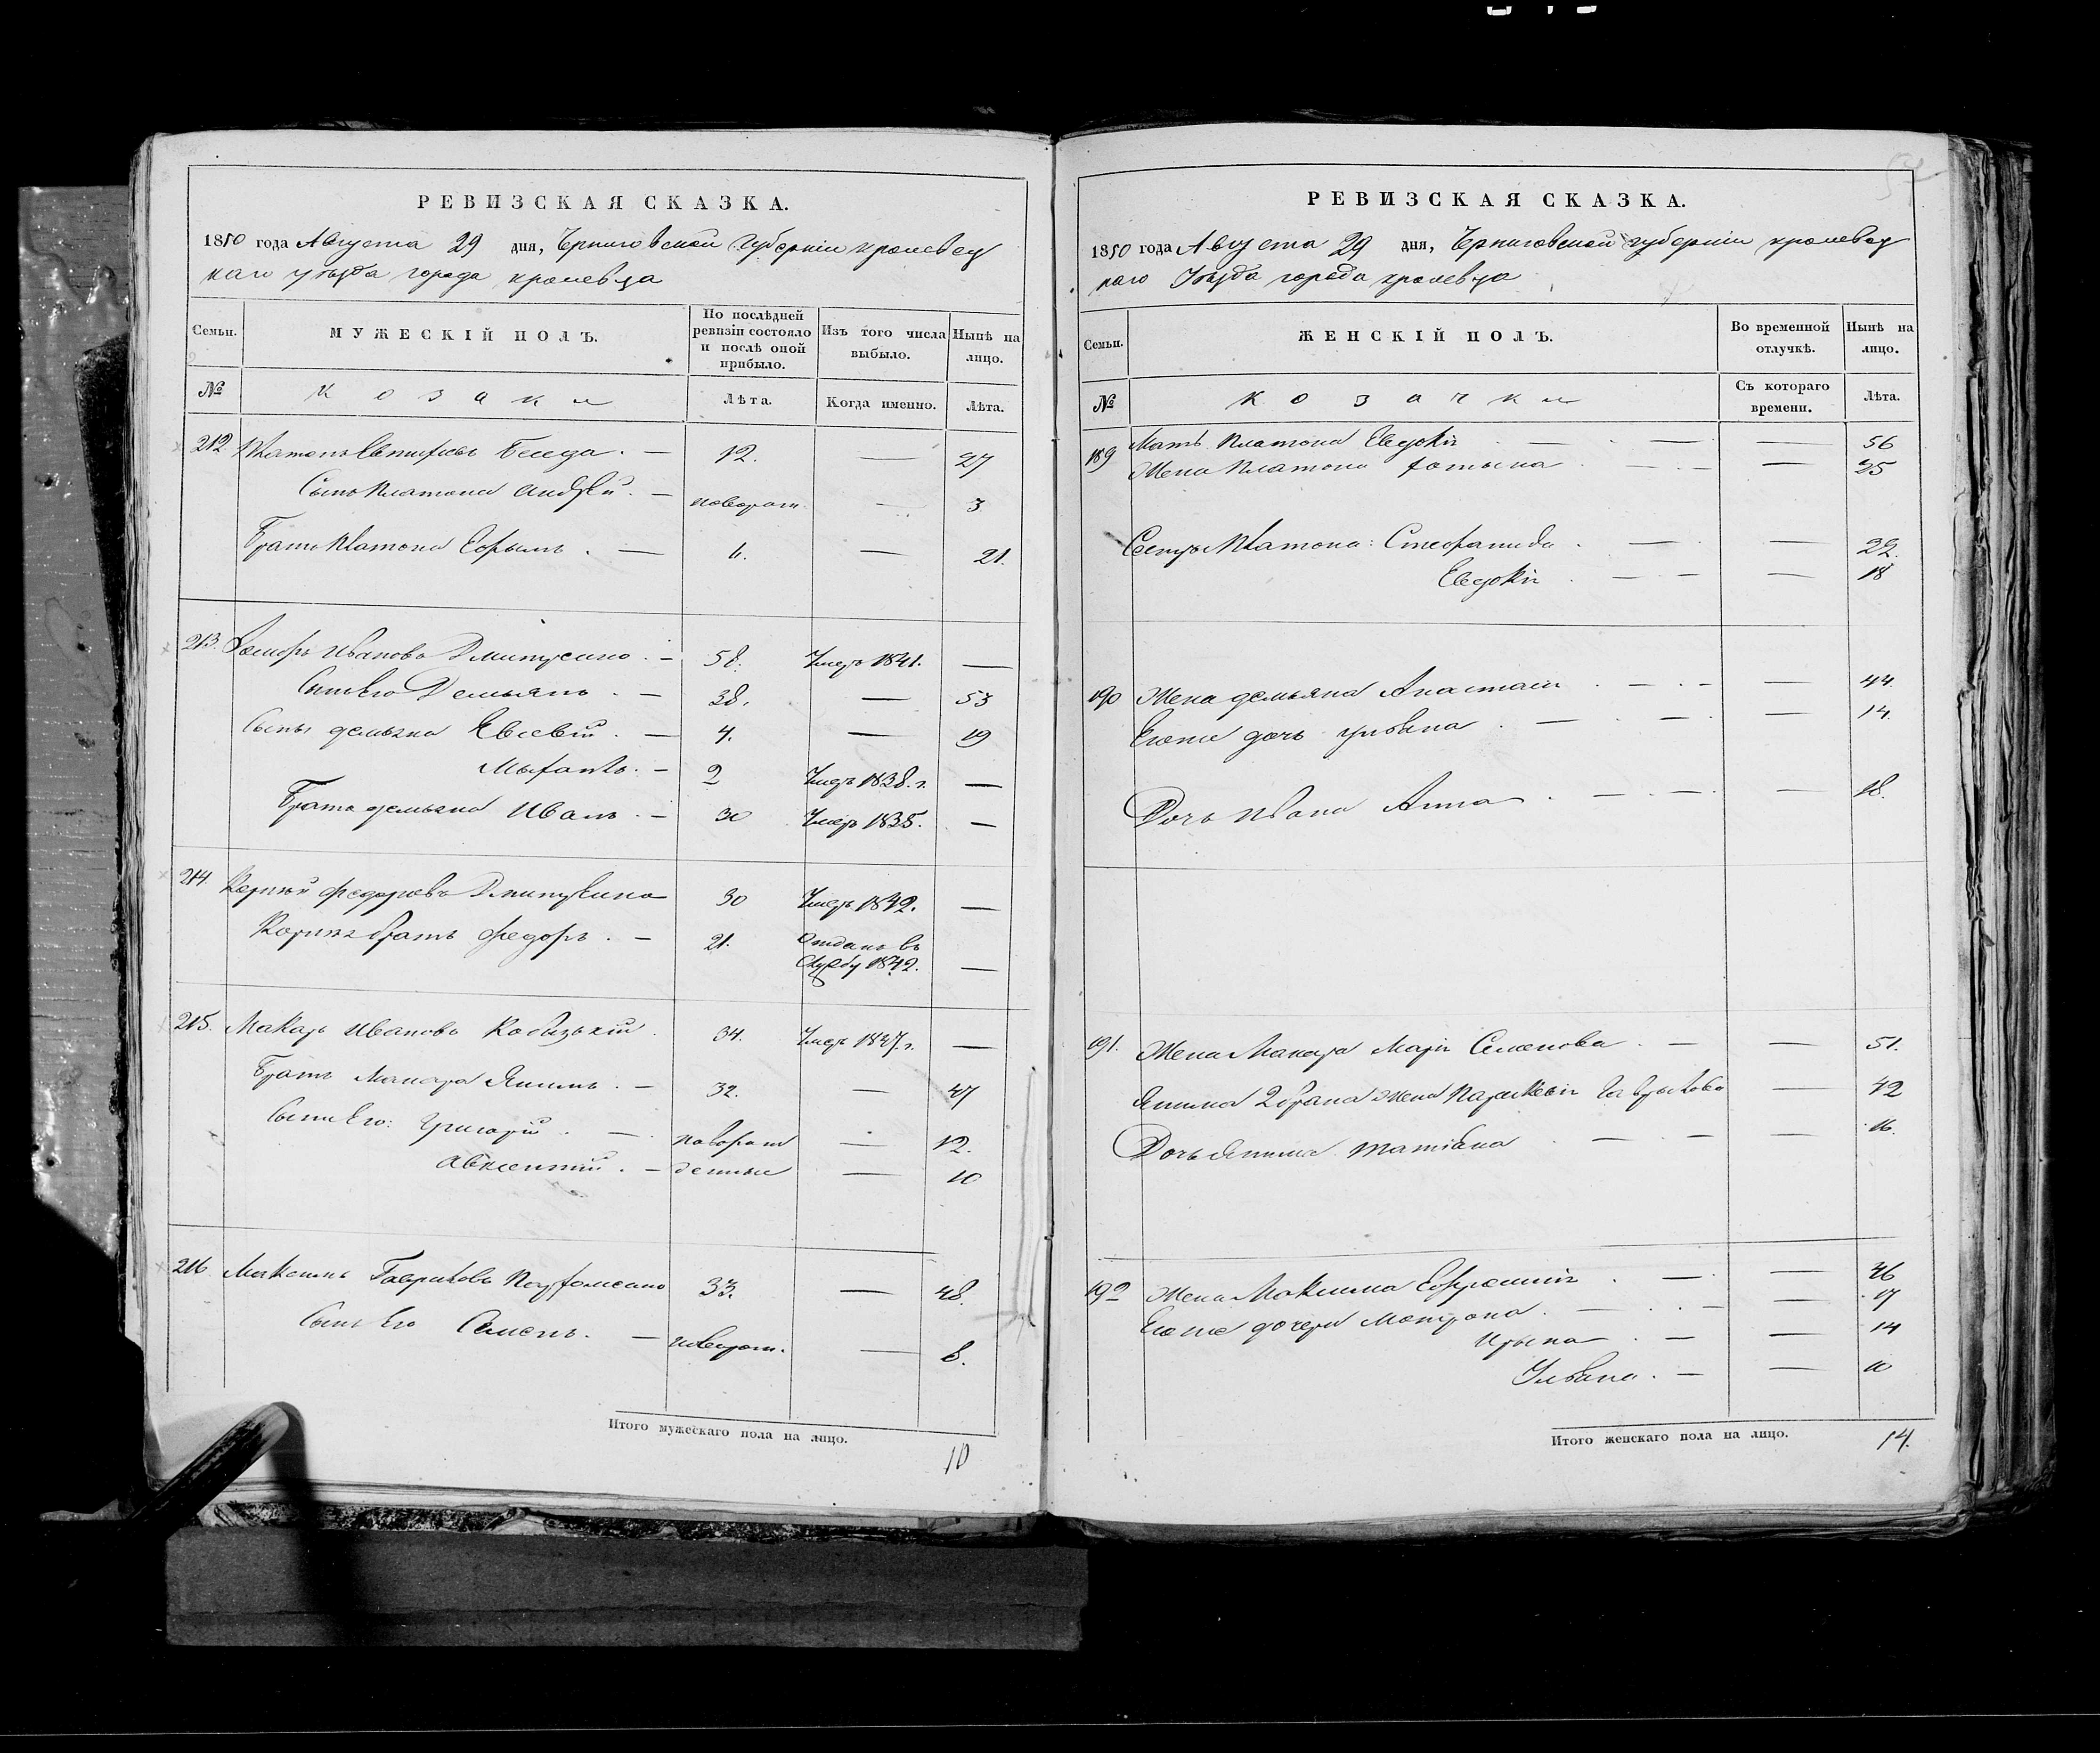 РЕВИЗСКАЯ СКАЗКА.
1850 года Августа 29 дня, Черниговской Губерніи кролевец
каго уѣзда города кролевца
Семьи.
МУЖЕСКІЙ ПОЛЪ.
По послѣдней ревизіи состояло и послѣ оной прибыло.
Изъ того числа выбыло.
Нынѣ на лицо.
№
козаки
Лѣта.
Когда именно.
Лѣта.
212 Платонъ Евтифіевъ Беседа. — 12. — 27
Сынъ Платона Андрей. — новорож. — 3
Братъ Платона Ефимъ. — 6. — 21.
213. Ивановъ Дмитусенко. — 58. Умеръ 1841. —
Сынъ Его Демьянъ. — 38. — 53
Сыны демьяна Евсевій. — 4. — 19
— 2 Умеръ 1838. г. —
Братъ демьяна Иванъ. — 30 Умеръ 1835. —
214. Федоровъ 30 Умеръ 1842. —
братъ Федоръ. — 21. Отданъ въ
Службу 1842. —
215. Макаръ Ивановъ 34. Умеръ 1847. г. —
Братъ Макара Якимъ. — 32. — 47
Сыны Его: Григорій. — новорож — 12.
Авксентій. — денные — 10
216 Максимъ Гавриловъ 33. — 48.
Сынъ Его Семенъ. — новорож. — 8.
Итого мужескаго пола на лицо.
10
РЕВИЗСКАЯ СКАЗКА.
1850 года Августа 29 дня, Черниговской губерніи кролевец
каго Уѣзда города кролевца
Семьи.
ЖЕНСКІЙ ПОЛЪ.
Во временной отлучкѣ.
Нынѣ на лицо.
№
козачки
Съ котораго времени.
Лѣта.
189 Мать Платона Евдокія — — — 56
Жена Платона Фотына — — — 25
Сестры Платона: Стефанида. — — — 22.
Евдокія. — — — 18
190 Жена демьяна Анастасія. — — — 44.
Егоже дочь Ульяна. — — — 14.
Дочь Ивана Анна. — — — 18.
191. Жена Макара Марія Семенова. — — 51.
Якима 2 брака жена Параскевія Гаврилова — 42
Дочь Якима Татіана. — — — 16.
192 Жена Максима Ефросинія. — — 46
Егоже дочери Матрона. — — — 17
Ирына. — — 14
Ульяна. — — 10
Итого женскаго пола на лицо.
14.